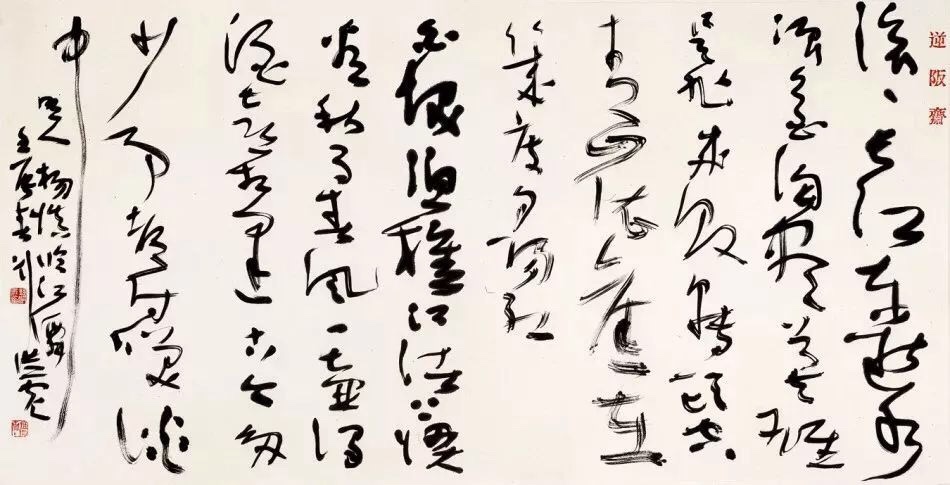 逆阪齋
滚滚长江东逝水
浪花淘盡英雄
是非成败转头空
青山依旧在
几度夕阳红
白发渔樵江渚上惯
看秋月春风一壶浊
酒喜相逢古今多
少事都付笑谈
中
杨慎临江仙